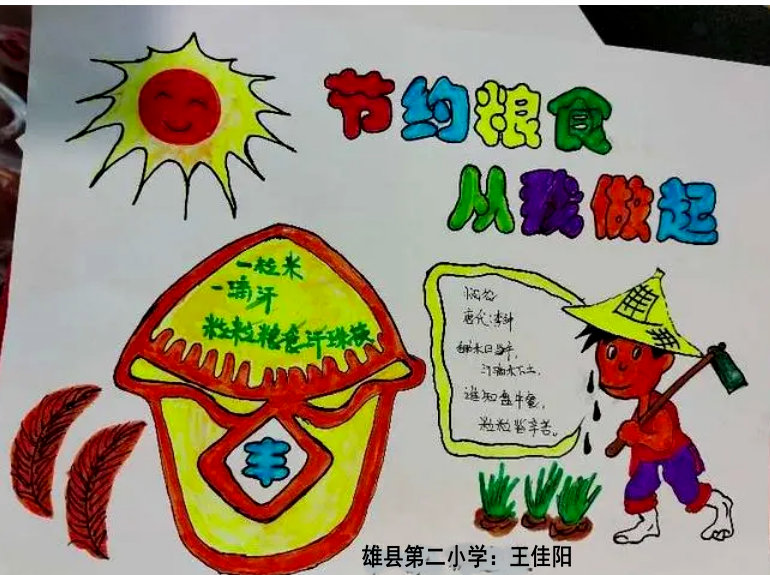 节约粮食
从我做起
一粒米
一滴汗
粒粒粮食汗珠换
丰
悯农
唐代:李绅
锄禾日当午,
汗滴禾下土。
谁知盘中餐,
粒粒皆辛苦。
雄县第二小学：王佳阳